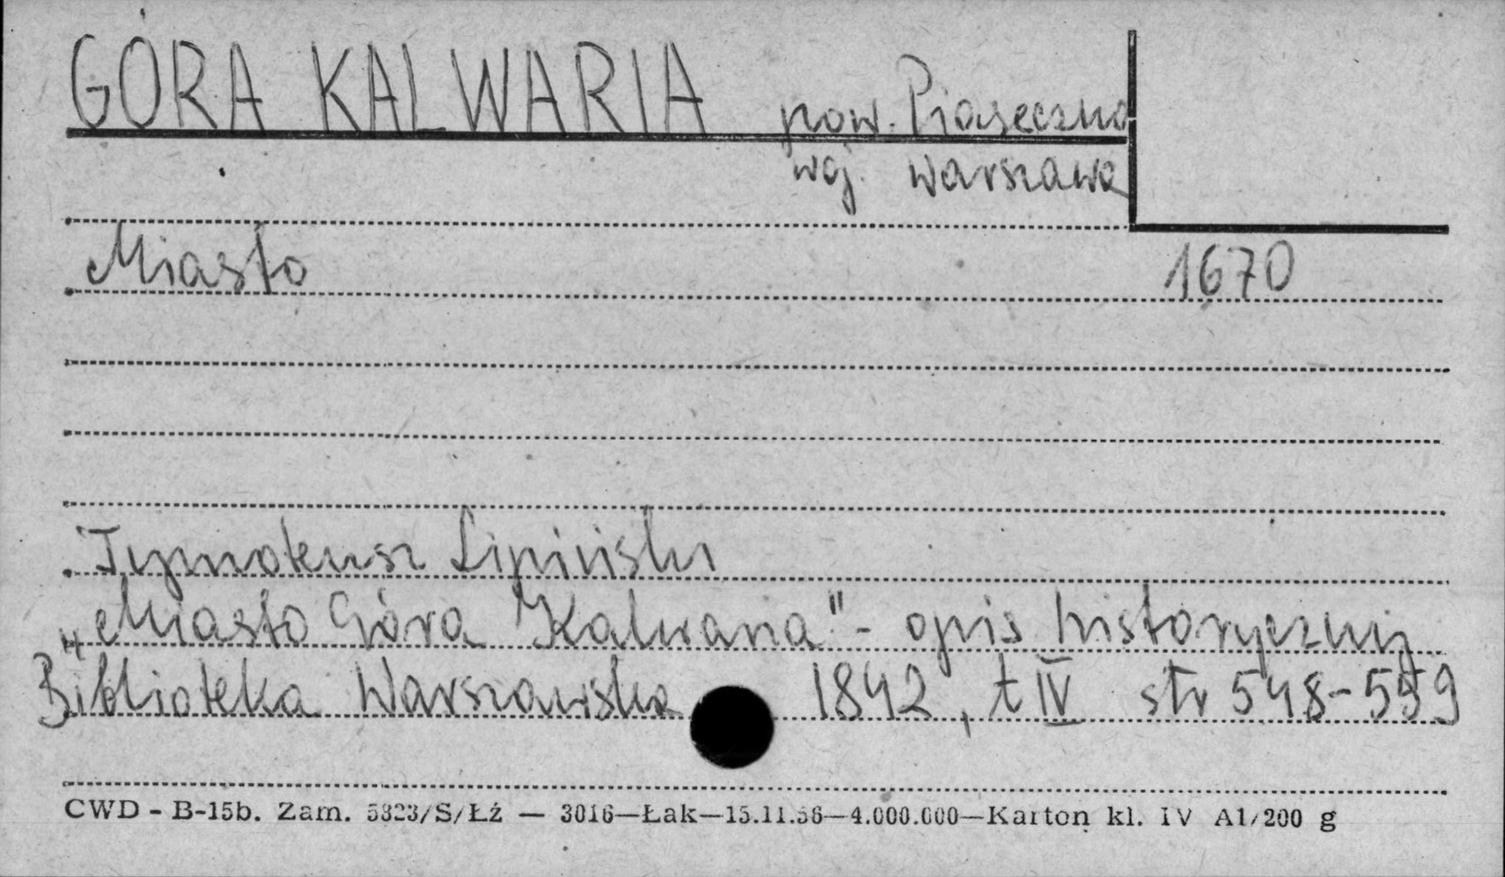 GÓRA KALWARIA pow. Piaseczno
woj. Warszawa
Miasto 1670
Tymoteusz Lipiński
„Miasto Góra Kalwaria" - opis historyczny
Biblioteka Warszawska 1842, t IV str 548-559
CWD - B-15b. Zam. 5323/S/Łź — 3016—Łak—15.11.56—4.000.000—Karton kl. IV A1/200 g